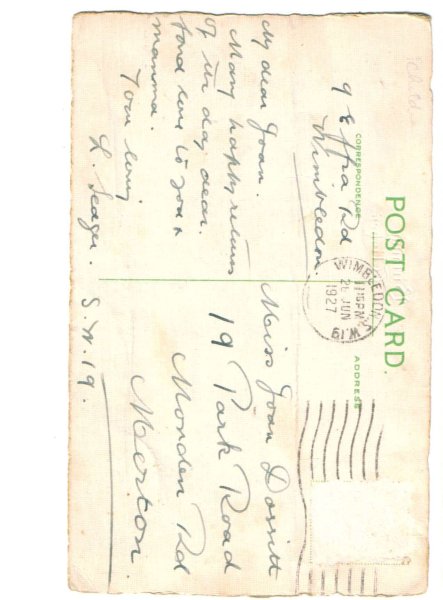 POST CARD.
CORRESPONDENCE
ADDRESS
WIMBLEDON S.W.19
1 15 PM
26 JUN
1927
9 Effra Rd
Wimbledon.
My dear Joan.
Many happy returns
of the day dear.
fond love to you &
mamma.
Your loving
L. Seager.
Miss Joan Dorritt
19 Park Road
Morden Rd
Merton.
S.W.19.